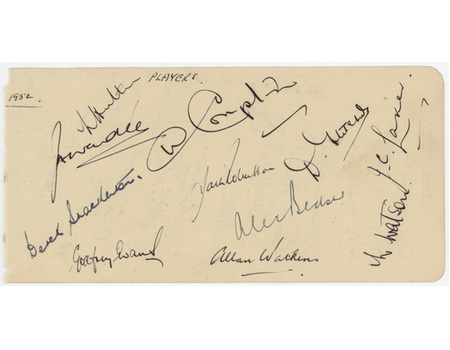 PLAYERS.
1952.
L Hutton
D Compton
J. C. Laker
Derek Shackleton.
Jack Robertson
Alec Bedser
W Watson
Godfrey Evans
Allan Watkins